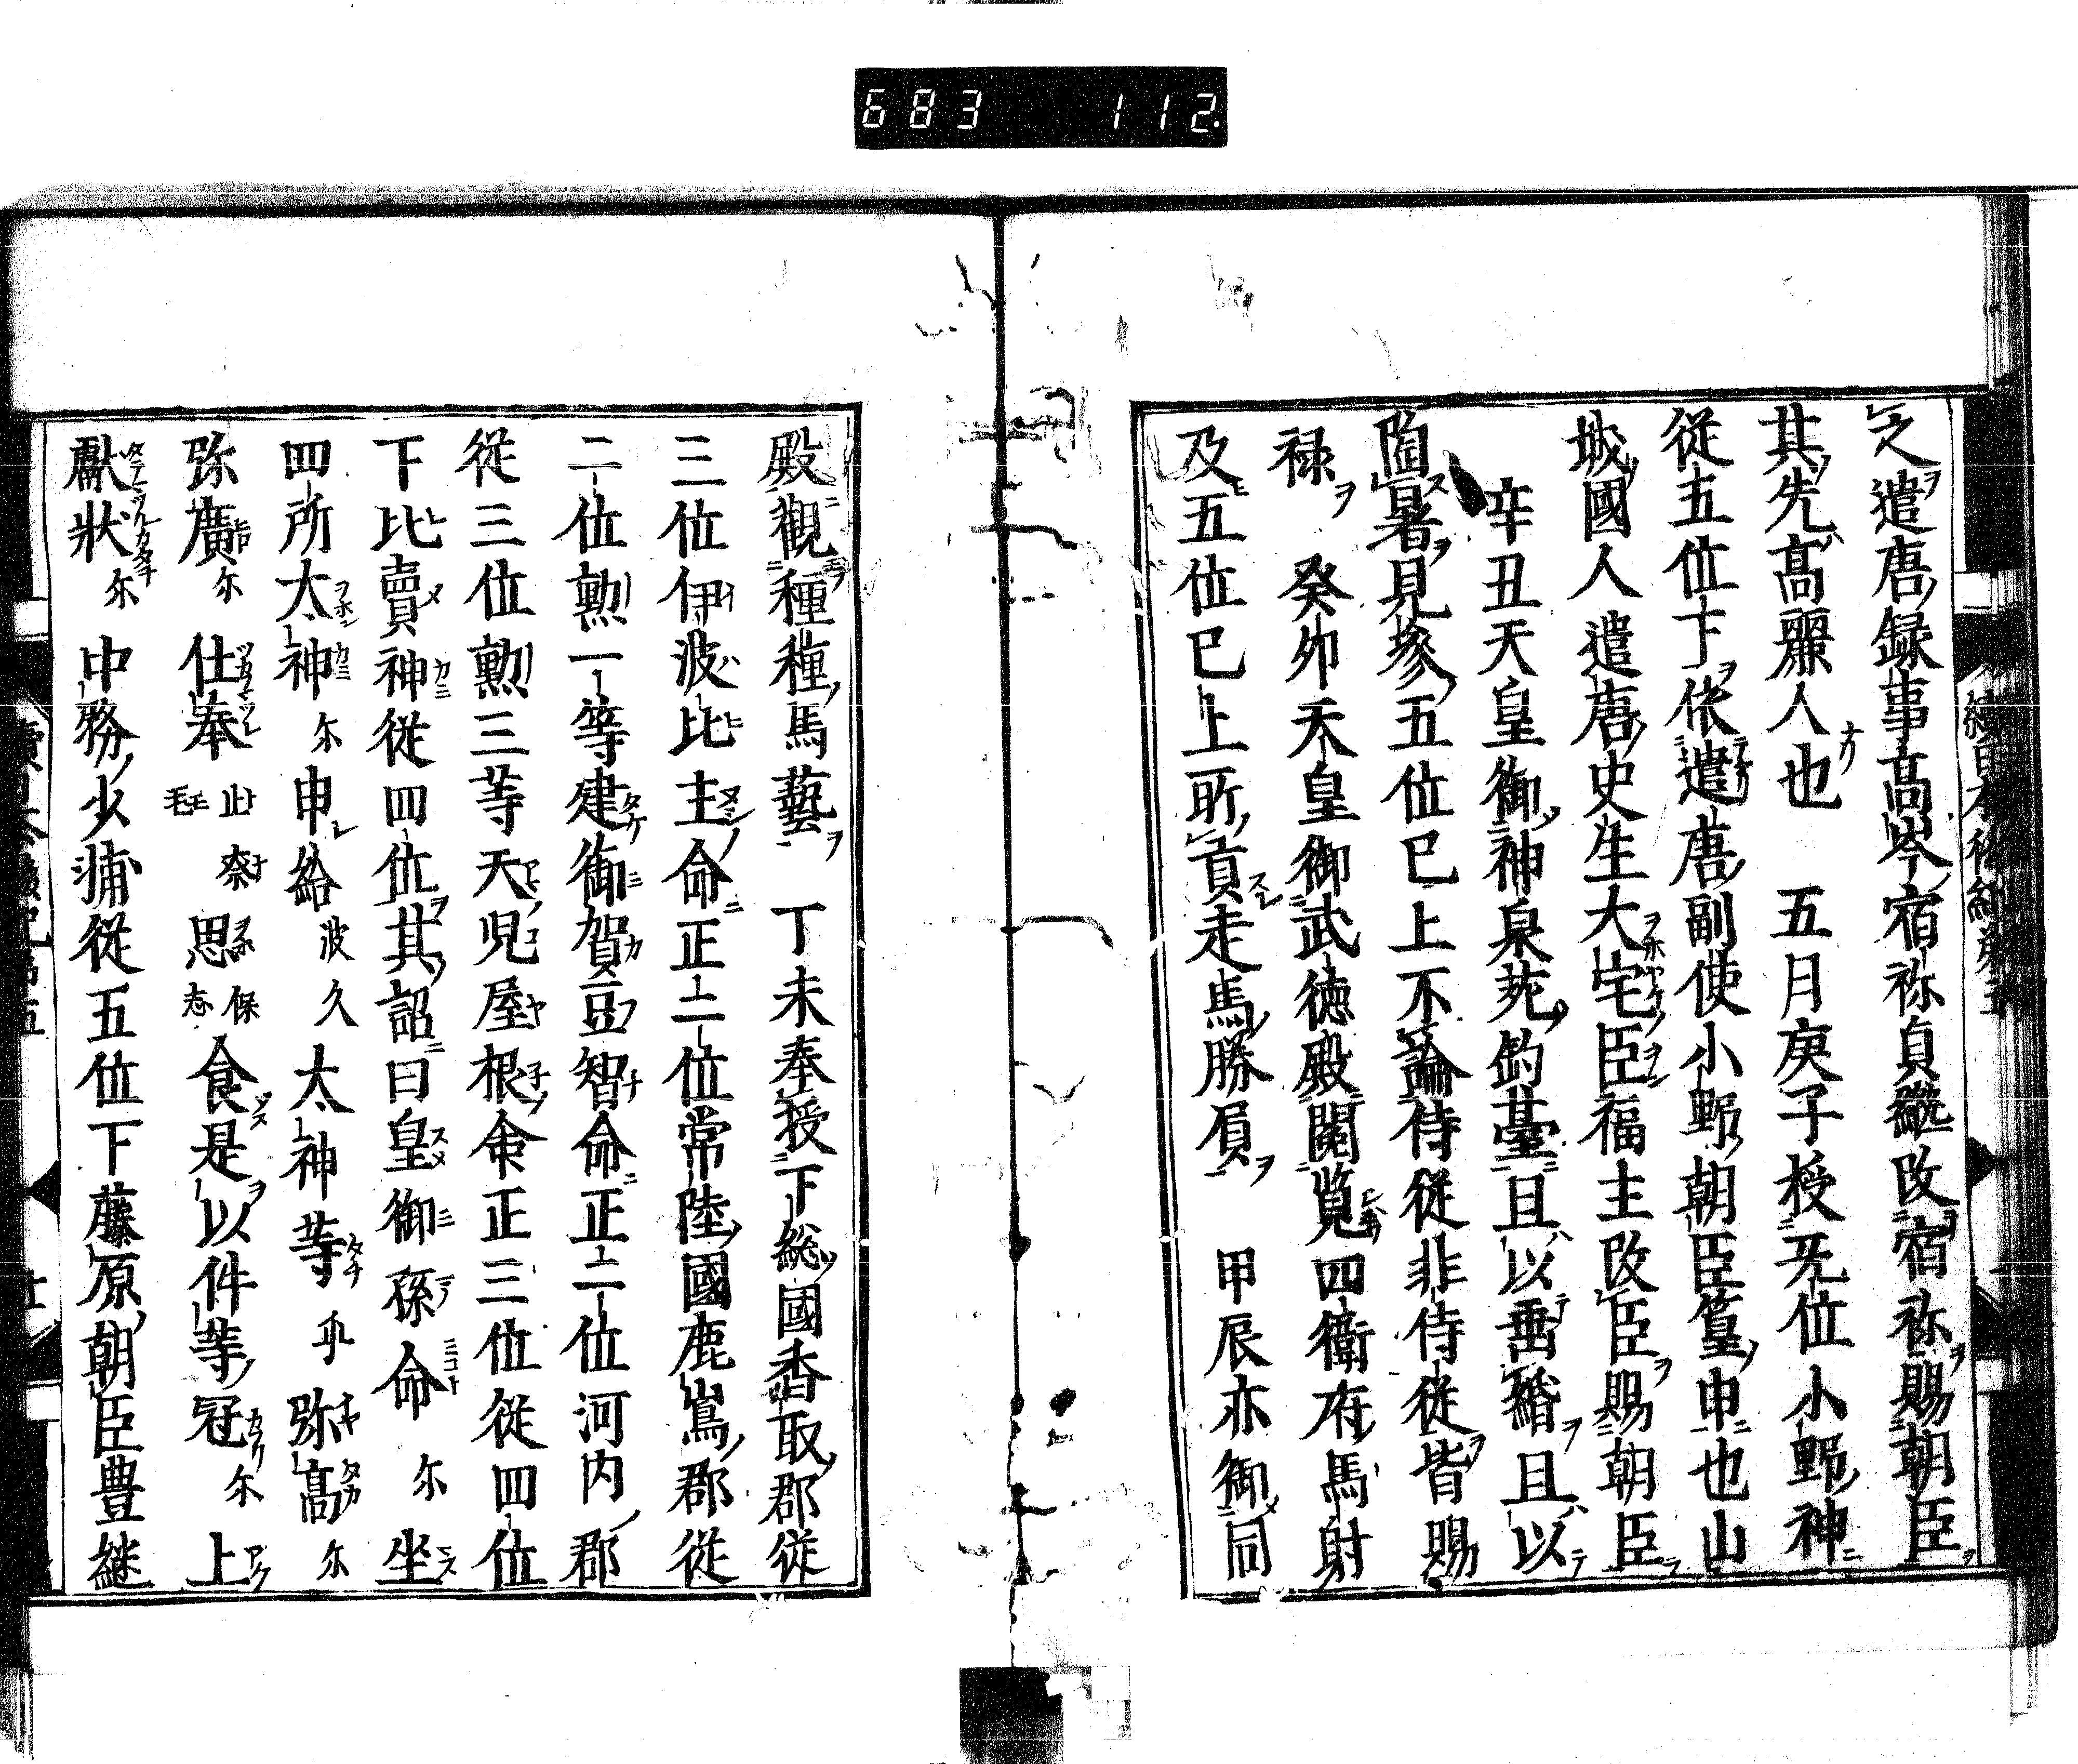 683 112
之遣唐録事高岑宿祢貞繼改宿祢賜朝臣
其先高麗人也 五月庚子授无位小野神
從五位下依遣唐副使小野朝臣篁申也山
城國人遣唐史生大宅臣福主改臣賜朝臣
辛丑天皇御神泉苑釣臺且以垂緡且以
陶暑見參五位已上不論侍從非侍從皆賜
禄 癸卯天皇御武徳殿閲覧四衛府馬射
及五位已上所貢走馬勝負 甲辰亦御同
殿觀種種馬藝 丁未奉授下総國香取郡從
三位伊波比主命正二位常陸國鹿嶌郡從
二位勲一等建御賀豆智命正二位河内郡
從三位勲三等天兒屋根命正三位從四位
下比賣神從四位其詔曰皇御孫命尓坐
四所太神尓申給波久太神等乎弥高尓
弥廣尓仕奉止奈毛思保志食是以件等冠尓上
獻状尓中務少浦從五位下藤原朝臣豊継